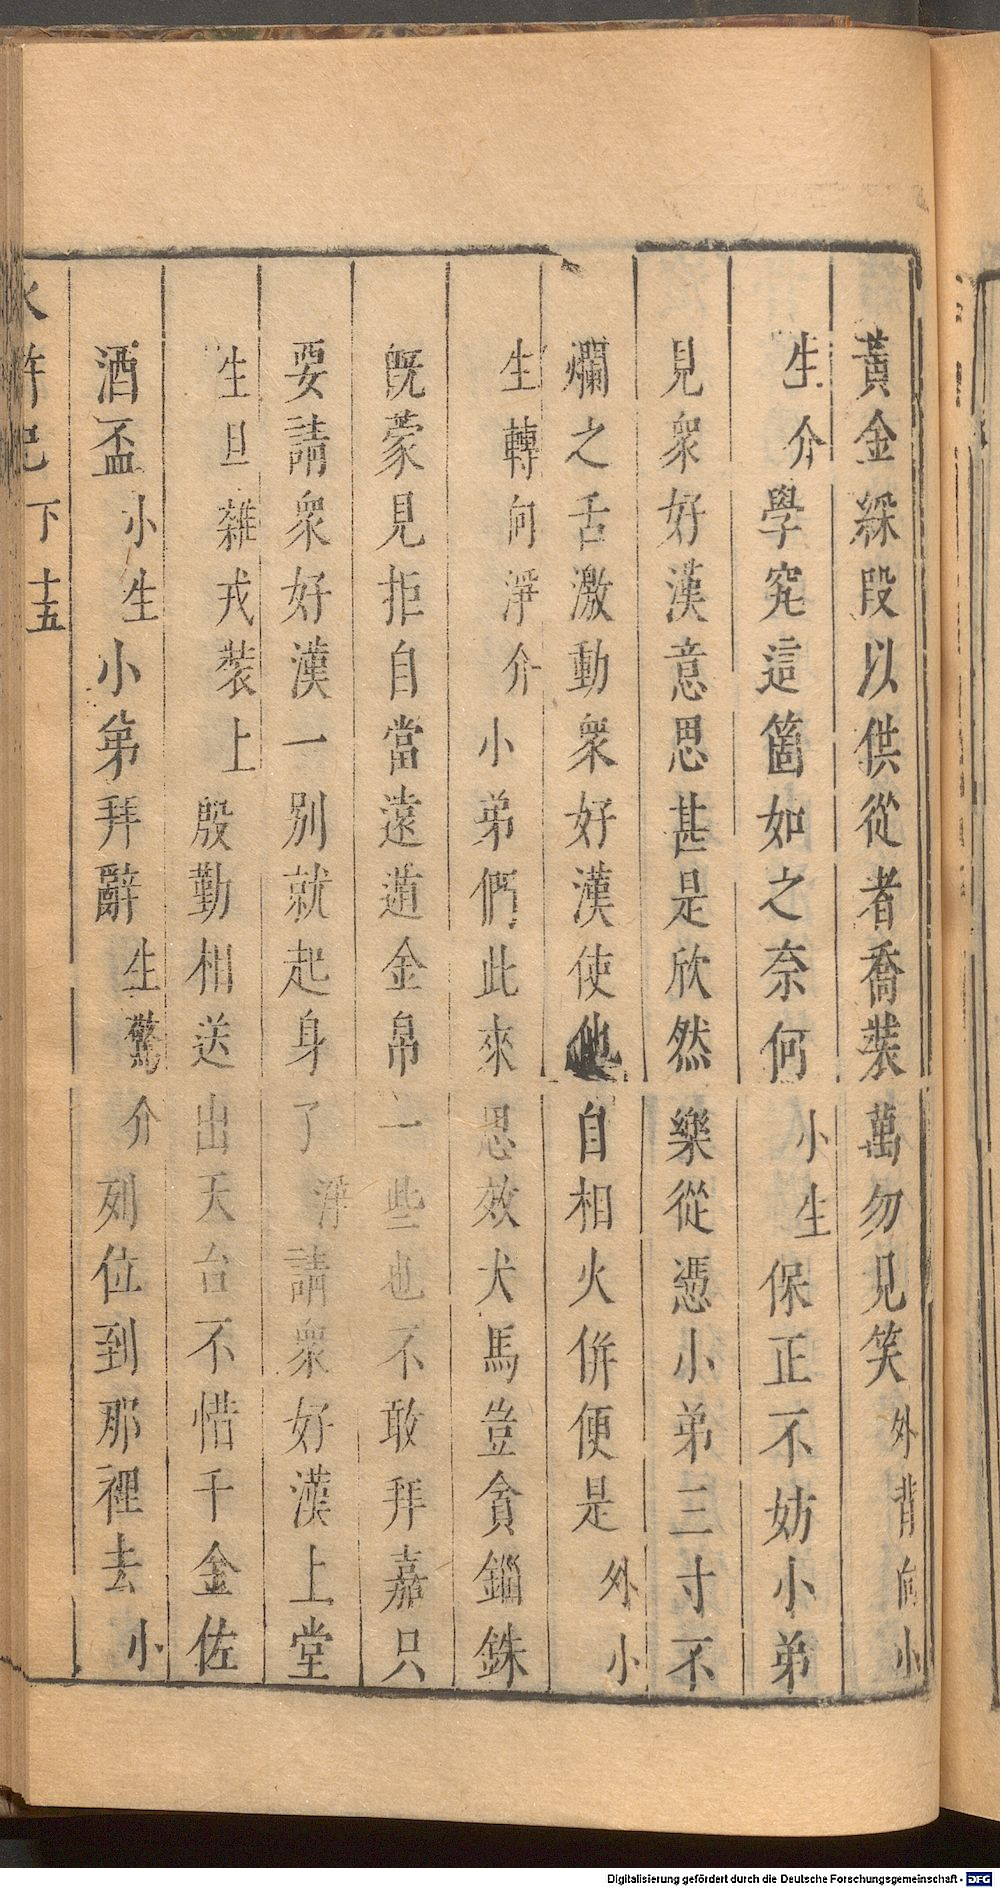 黃金綵段以供從者喬裝萬勿見笑外背向小
生介學究這箇如之奈何小生保正不妨小弟
見衆好漢意思甚是欣然樂從憑小弟三寸不
爛之舌激動衆好漢使他自相火併便是外小
生轉向淨介小弟們此來思效犬馬豈貪錙銖
旣蒙見拒自當遠遁金帛一些也不敢拜嘉只
要請衆好漢一別就起身了淨請衆好漢上堂
生旦雜戎裝上殷勤相送出天台不惜千金佐
酒盃小生小弟拜辭生驚介列位到那裡去小
水滸記下十五
Digitalisierung gefördert durch die Deutsche Forschungsgemeinschaft - DFG